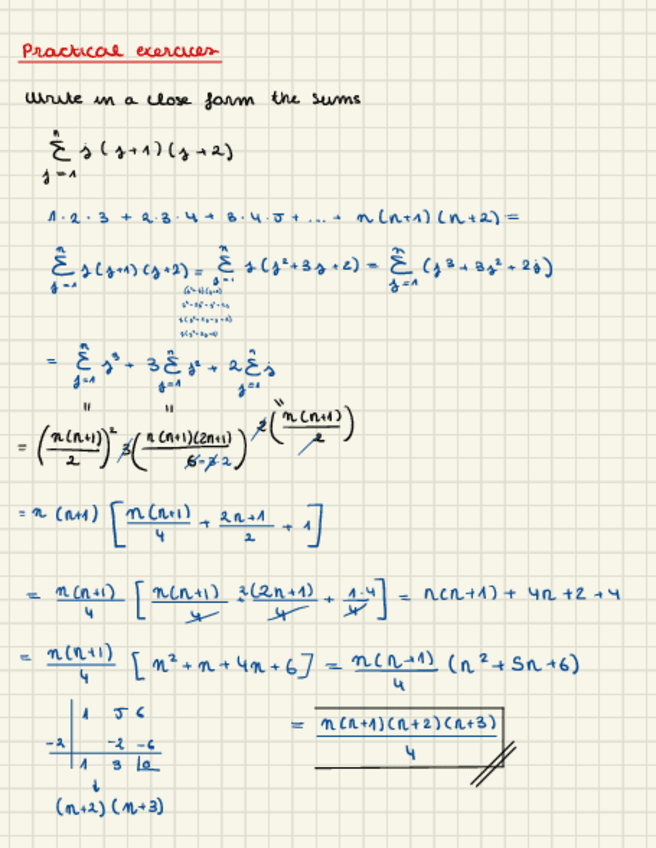 Practical exercices
Write in a close form the sums
n
Σ j(j+1)(j+2)
j=1
1·2·3 + 2·3·4 + 3·4·5 + ... + n(n+1)(n+2) =
Σ_{j=1}^{n} j(j+1)(j+2) = Σ_{j=1}^{n} j(j²+3j+2) = Σ_{j=1}^{n} (j³+3j²+2j)
= Σ_{j=1}^{n} j³ + 3 Σ_{j=1}^{n} j² + 2 Σ_{j=1}^{n} j
" " "
= (n(n+1)/2)² 3(n(n+1)(2n+1)/6=3·2) 2(n(n+1)/2)
= n(n+1) [n(n+1)/4 + 2n+1/2 + 1]
= n(n+1)/4 [n(n+1)/4 + 2(2n+1)/4 + 1·4/4] = n(n+1) + 4n+2+4
= n(n+1)/4 [n²+n+4n+6] = n(n+1)/4 (n²+5n+6)
1 5 6
-2 -2 -6
1 3 0
↓
(n+2)(n+3)
= n(n+1)(n+2)(n+3)/4